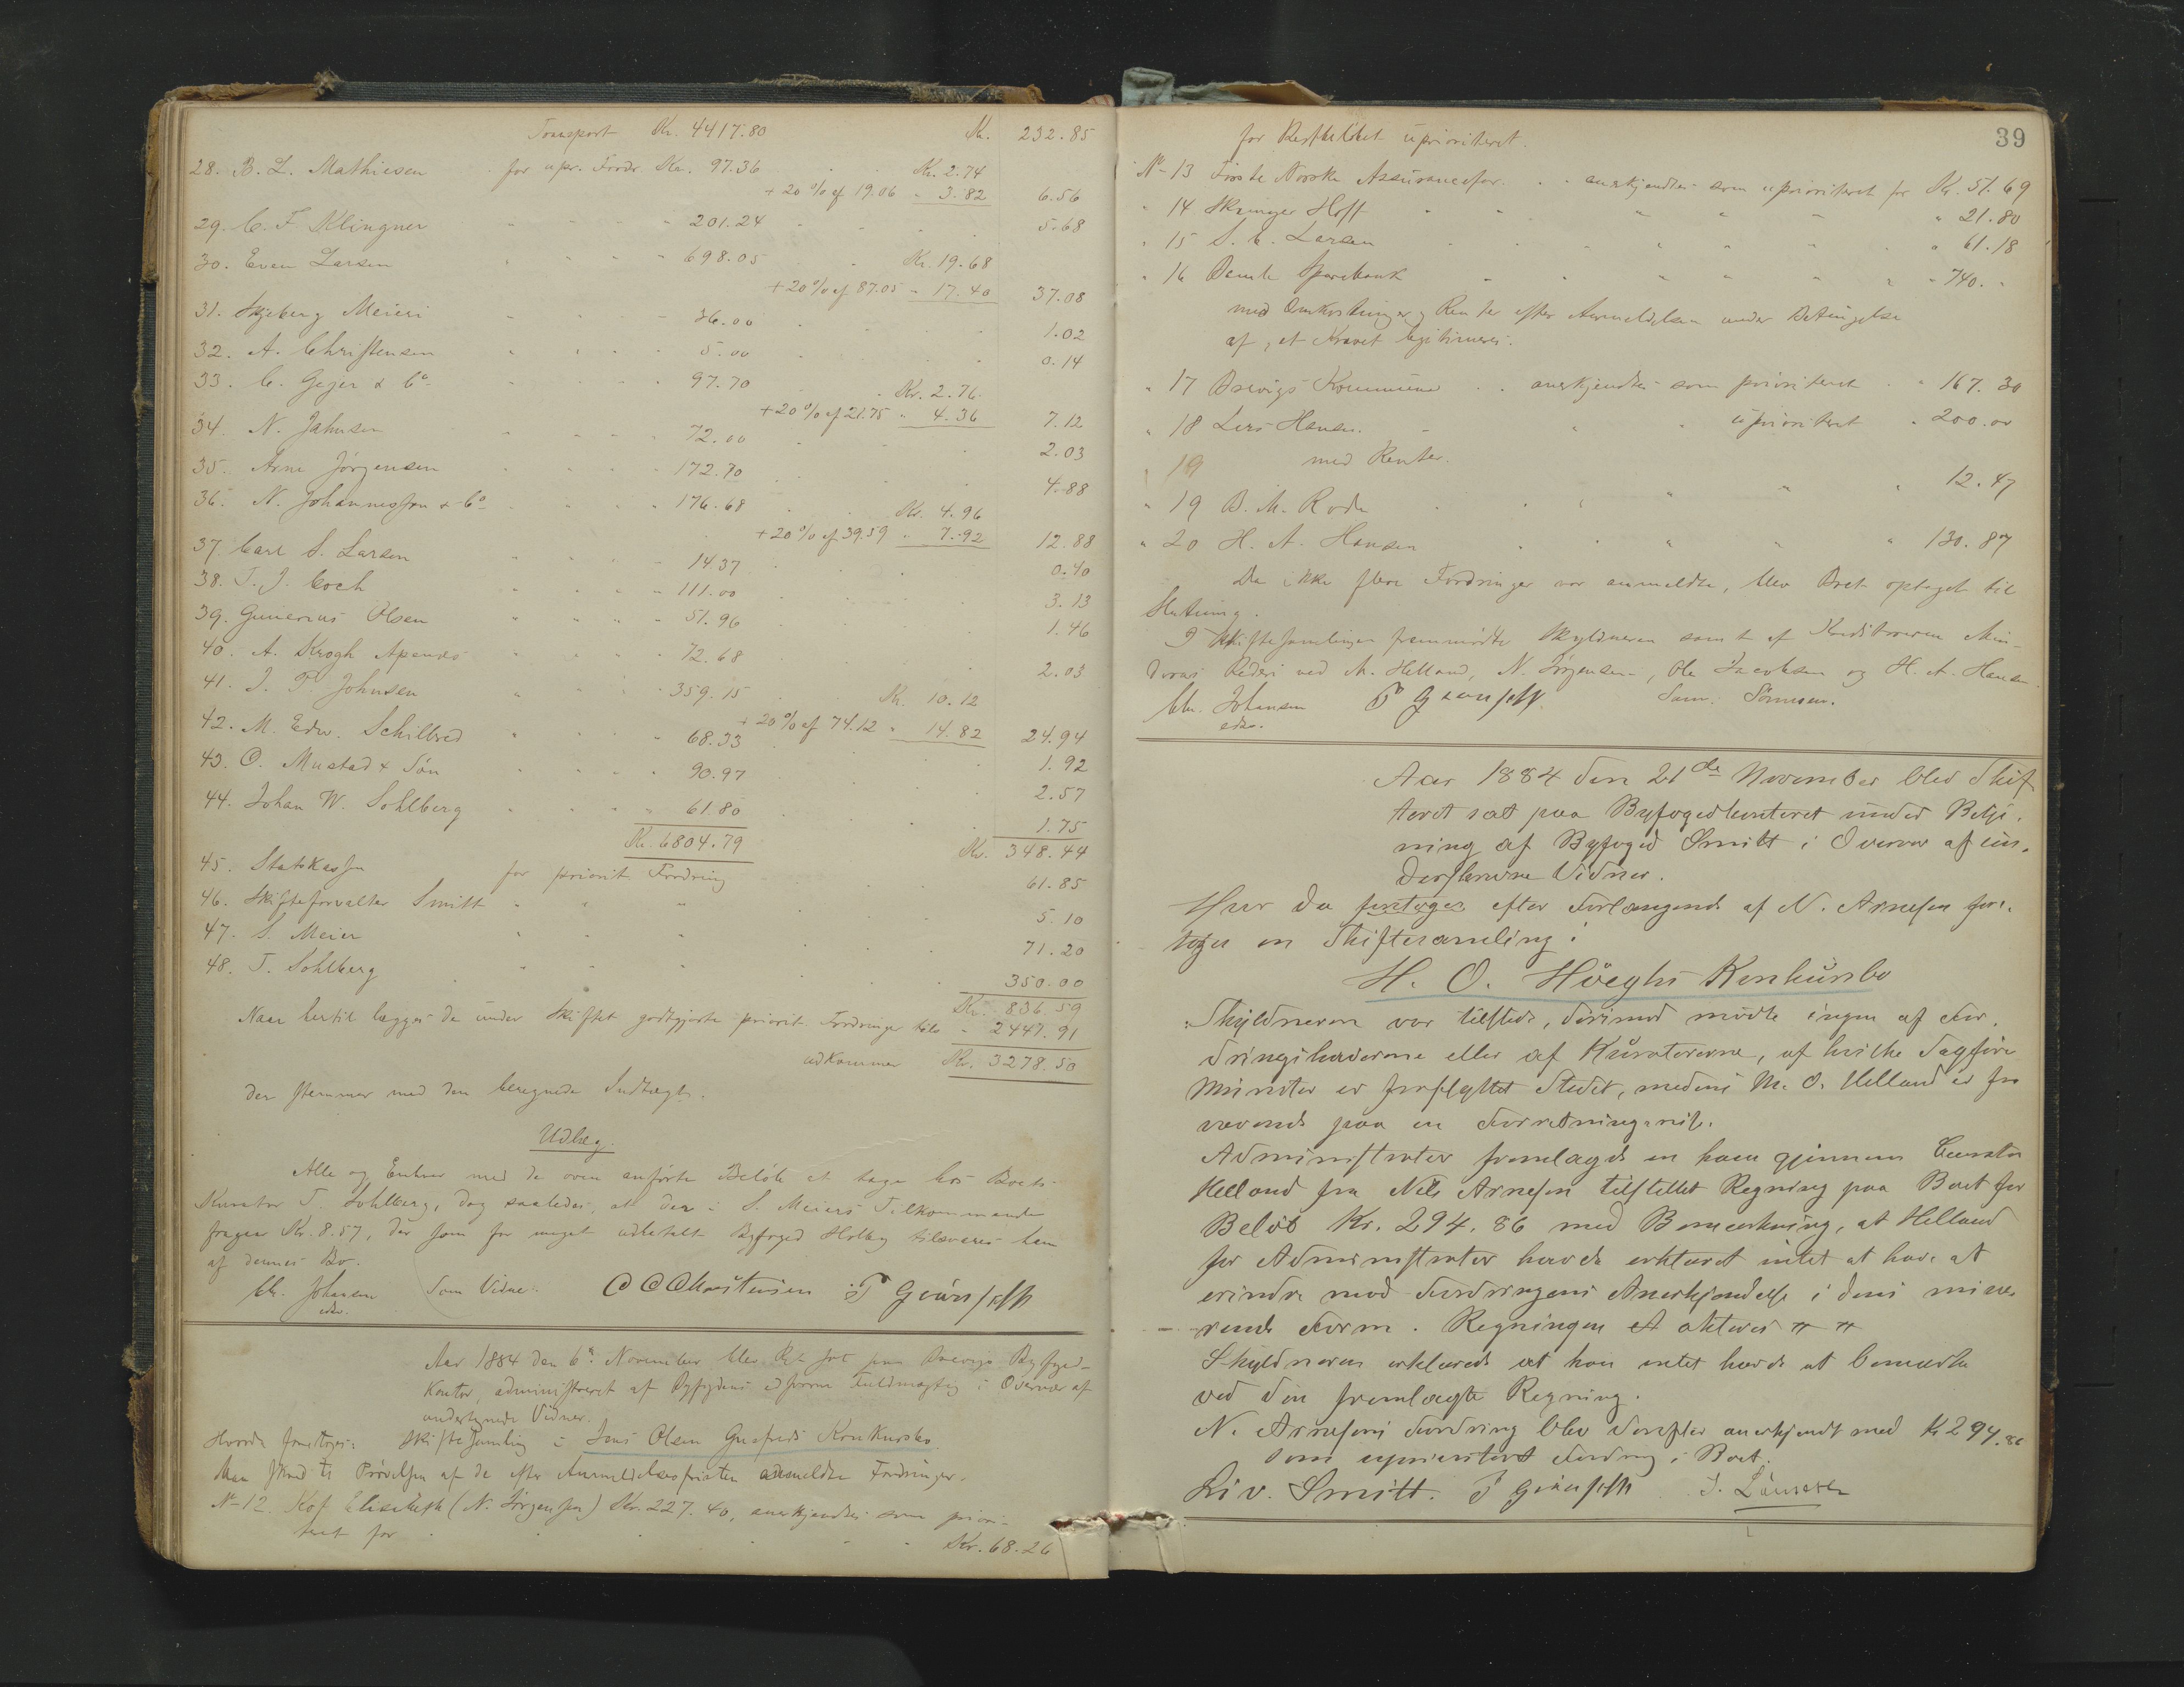 Transport Kr. 4417.80 Kr. 232.85
28. B. L. Mathiesen for upr. Fordr. Kr. 97.36 Kr. 2.74
+ 20 % af 19.06 " 3.82 6.56
29. C. F. Klingner " 201.24 5.68
30. Even Larsen " 698.05 Kr. 19.68
+ 20 % af 87.05 " 17.40 37.08
31. Skjeberg Meieri " 36.00 1.02
32. A. Christensen " 5.00 0.14
33. C. Geijer & Co. " 97.70 Kr. 2.76
+ 20 % af 21.75 " 4.36 7.12
34. N. Jahnsen " 72.00 2.03
35. Arne Jörgensen " 172.70 4.88
36. N. Johannessen & Co. " 176.68 Kr. 4.96
+ 20 % af 39.59 " 7.92 12.88
37. Carl S. Larsen " 14.37 0.40
38. T. J. Coch " 111.00 3.13
39. Gunerius Olsen " 51.96 1.46
40. A. Krogh Apenæs " 72.68 2.03
41. J. T. Johnsen " 359.15 Kr. 10.12
+ 20 % af 74.12 " 14.82 24.94
42. M. Edw. Schilbred " 68.33 1.92
43. O. Mustad & Sön " 90.97 2.57
44. Johan W. Sohlberg " 61.80 1.75
Kr. 6804.79 Kr. 348.44
45. Statskassen for priorit. Fordring 61.85
46. Skifteforvalter Smitt " " " 5.10
47. S. Meier " " " 71.20
48. T. Sohlberg " " " 350.00
Kr. 836.59
Naar hertil lægges de under Skiftet godtgjorte priorit. Fordringer " 2447.91
udkommer Kr. 3278.50
der stemmer med den beregnede Indtægt.
Udlæg.
Alle og Enhver med de oven anførte Beløb at tage hos Boets
Kurator T. Sohlberg, dog saaledes, at der i S. Meiers Tilkommende
fragaar Kr. 8.57, der som for meget udbetalt Byfoged Holby tilsvares ham
af dennes Bo.
Chr. Johansen Som Vidne: O C Christensen
edsv.
Aar 1884 den 6te November blev Ret sat paa Brevigs Byfoged-
kontor, administreret af Byfogdens edsvorne Fuldmægtig i Overvær af
undertegnede Vidner.
Hvorda foretoges: Skiftesamling i Jens Olsen Konkursbo.
Man skred til Prövelsen af de efter Anmeldelsesfristen anmeldte Fordringer.
No 12. Kof Elisabeth (N. Jörgensen) Kr. 227.40, anerkjendtes som priori-
teret for Kr. 68.26
39
for Restbelöbet uprioriteret.
No 13 Første Norske Assurancefor. anerkjendtes som uprioriteret for Kr. 51.69
" 14 Hoff " " " " 21.80
" 15 S. C. Larsen " " " " 61.18
" 16 Bamle Sparebank " " " " 740. "
med Omkostninger og Renter efter Anmeldelsen under Betingelse
af, at Kravet legitimeres.
" 17 Brevigs Kommune anerkjendtes som prioriteret " 167.30
" 18 Lars Hansen " " uprioriteret " 200.00
" 19 med Renter.
" 19 B. M. Rode " " " 12.47
" 20 H. A. Hansen " " " 130.87
Da ikke flere Fordringer var anmeldte, blev Boet optaget til
Slutning.
I Skiftesamlingen fremmødte Skyldneren samt af Kreditorerne Min-
Rederi ved M. Helland, N. Jörgensen, Ole Jacobsen og H. A. Hansen.
Chr. Johansen Sam: Sönnesen.
edsv.
Aar 1884 den 21de November blev Skif
teret sat paa Byfogedkontoret under Betje-
ning af Byfoged Smitt i Overvær af un-
derskrevne Vidner.
Hvor da foretoges efter Forlangende af N. Arnesen fore-
toges en Skiftesamling i
H. O. Höeghs Konkursbo
Skyldneren var tilstede, derimod mødte ingen af For-
dringshaverne eller af Kuratorerne, af hvilke Sagfører
er fraflyttet Stedet, medens M. O. Helland er fra
værende paa en Forretningsreise.
Administrator fremlagde en ham gjennem Curator
Helland fra Nils Arnesen tilstillet Regning paa Boet for
Belöb Kr. 294.86 med Bemærkning, at Helland
for Administrator havde erklæret intet at have at
erindre mod Fordringens Anerkjendelse i dens nuvæ-
rende Form. Regningen akteres
Skyldneren erklærede at han intet havde at bemærke
ved den fremlagte Regning.
N. Arnesens Fordring blev derefter anerkjendt med Kr 294.86
som uprioriteret Fordring i Boet.
Liv. Smitt.